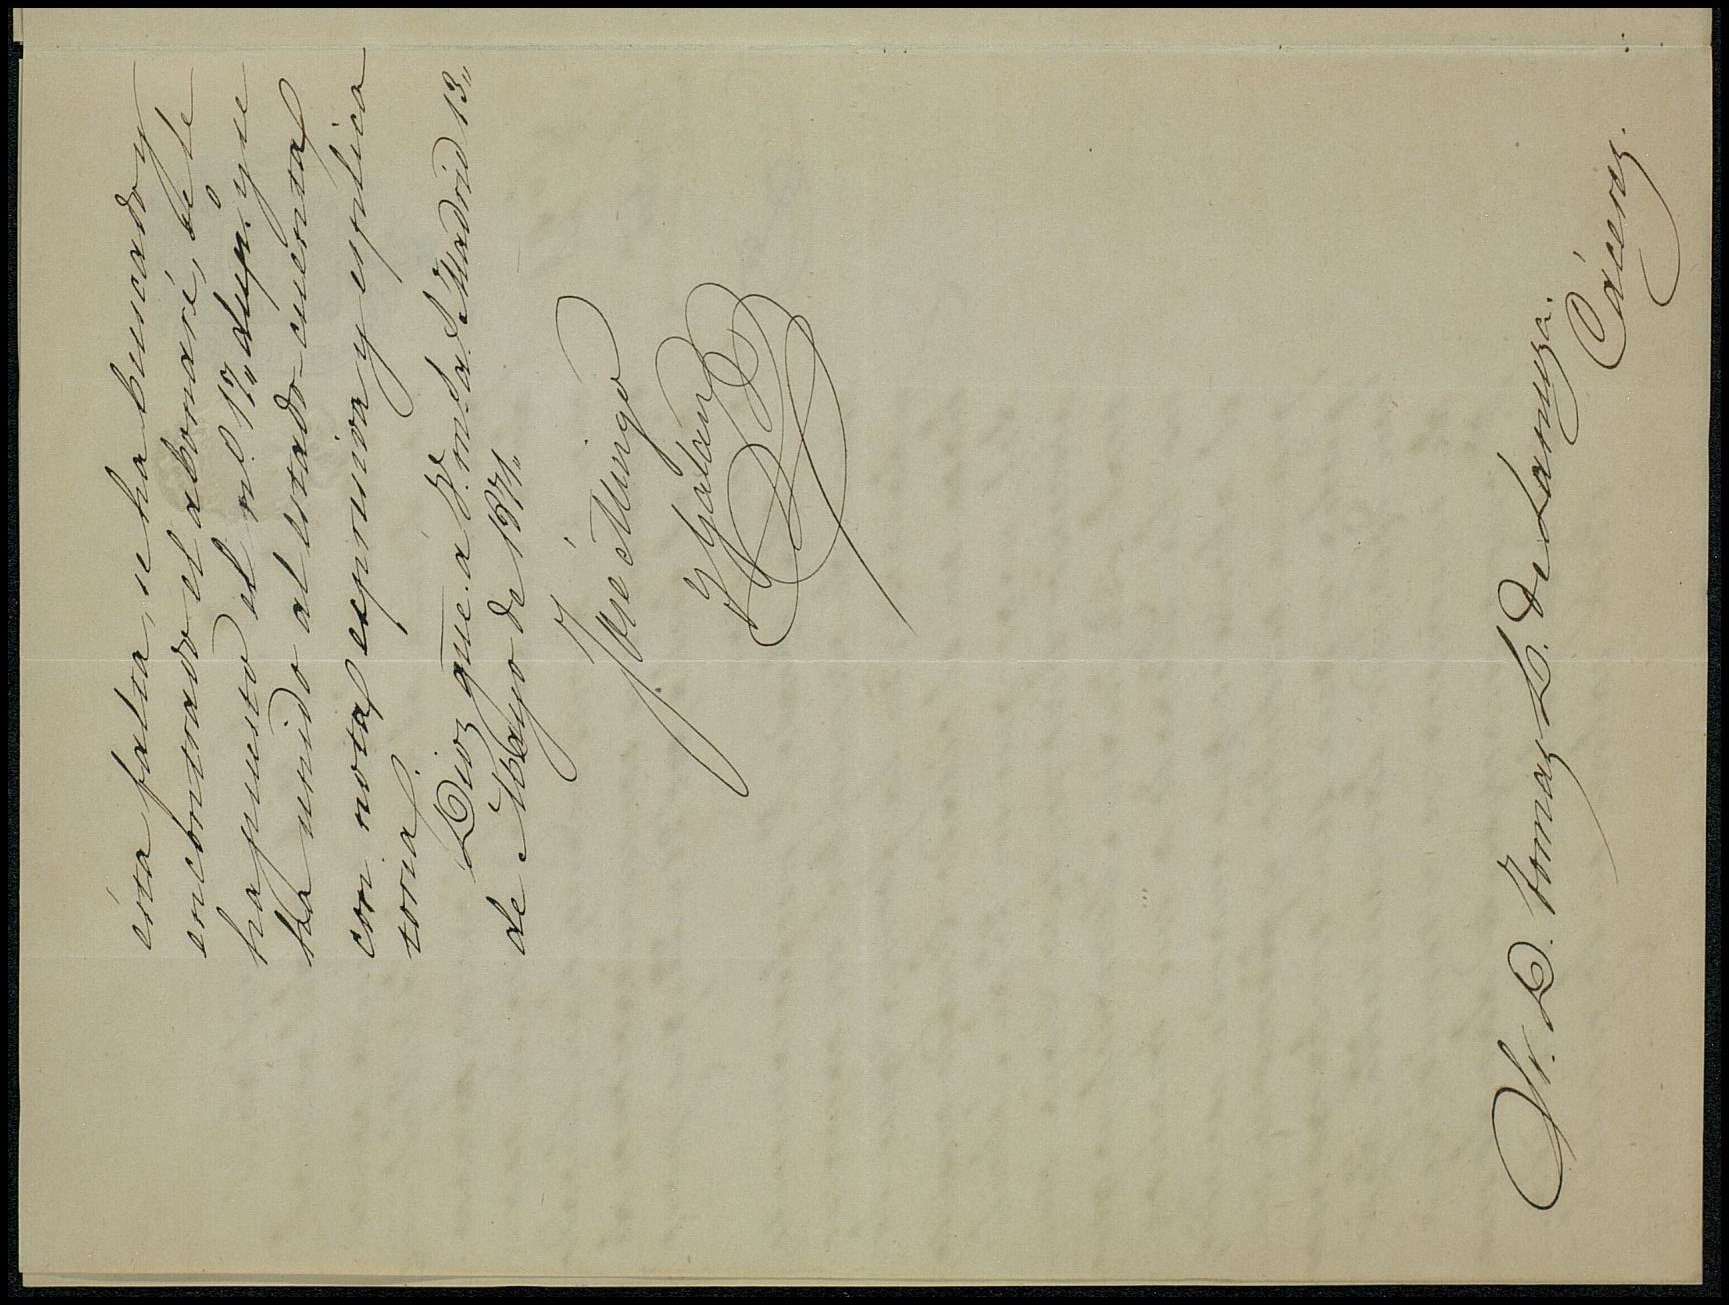 ésta falta, se ha buscado y
encontrado el abonaré, béle
ha puesto el n.º 17„ dup.º y se
ha unido al estado-cuenta
con nota expresiva y esplica
toria.
Dios gũe. á V. m. a. Madrid 13„
de Mayo de 1871„
José Mungo
y Galan
Sr. D. Tomas L. de Lamuza.
Cáceres.